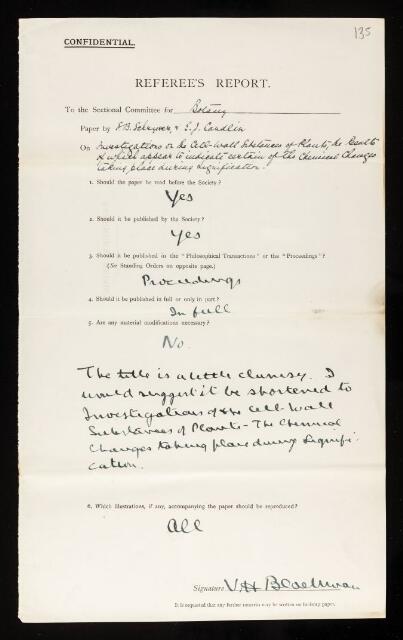 135
CONFIDENTIAL.
REFEREE'S REPORT.
To the Sectional Committee for Botany
Paper by S. B. Schryver, & E. J. Candlin
On Investigations on the Cell-Wall Substances of Plants, the Results
of which appear to indicate certain of the Chemical Changes
taking place during Lignification.
1. Should the paper be read before the Society?
Yes
2. Should it be published by the Society?
Yes
3. Should it be published in the "Philosophical Transactions" or the "Proceedings"?
(See Standing Orders on opposite page.)
Proceedings
4. Should it be published in full or only in part?
In full
5. Are any material modifications necessary?
No.
The title is a little clumsy. I
would suggest it be shortened to
Investigations of the Cell-Wall
Substances of Plants - The Chemical
Changes taking place during Lignifi-
cation.
6. Which illustrations, if any, accompanying the paper should be reproduced?
All
Signature V. H. Blackman
It is requested that any further remarks may be written on foolscap paper.